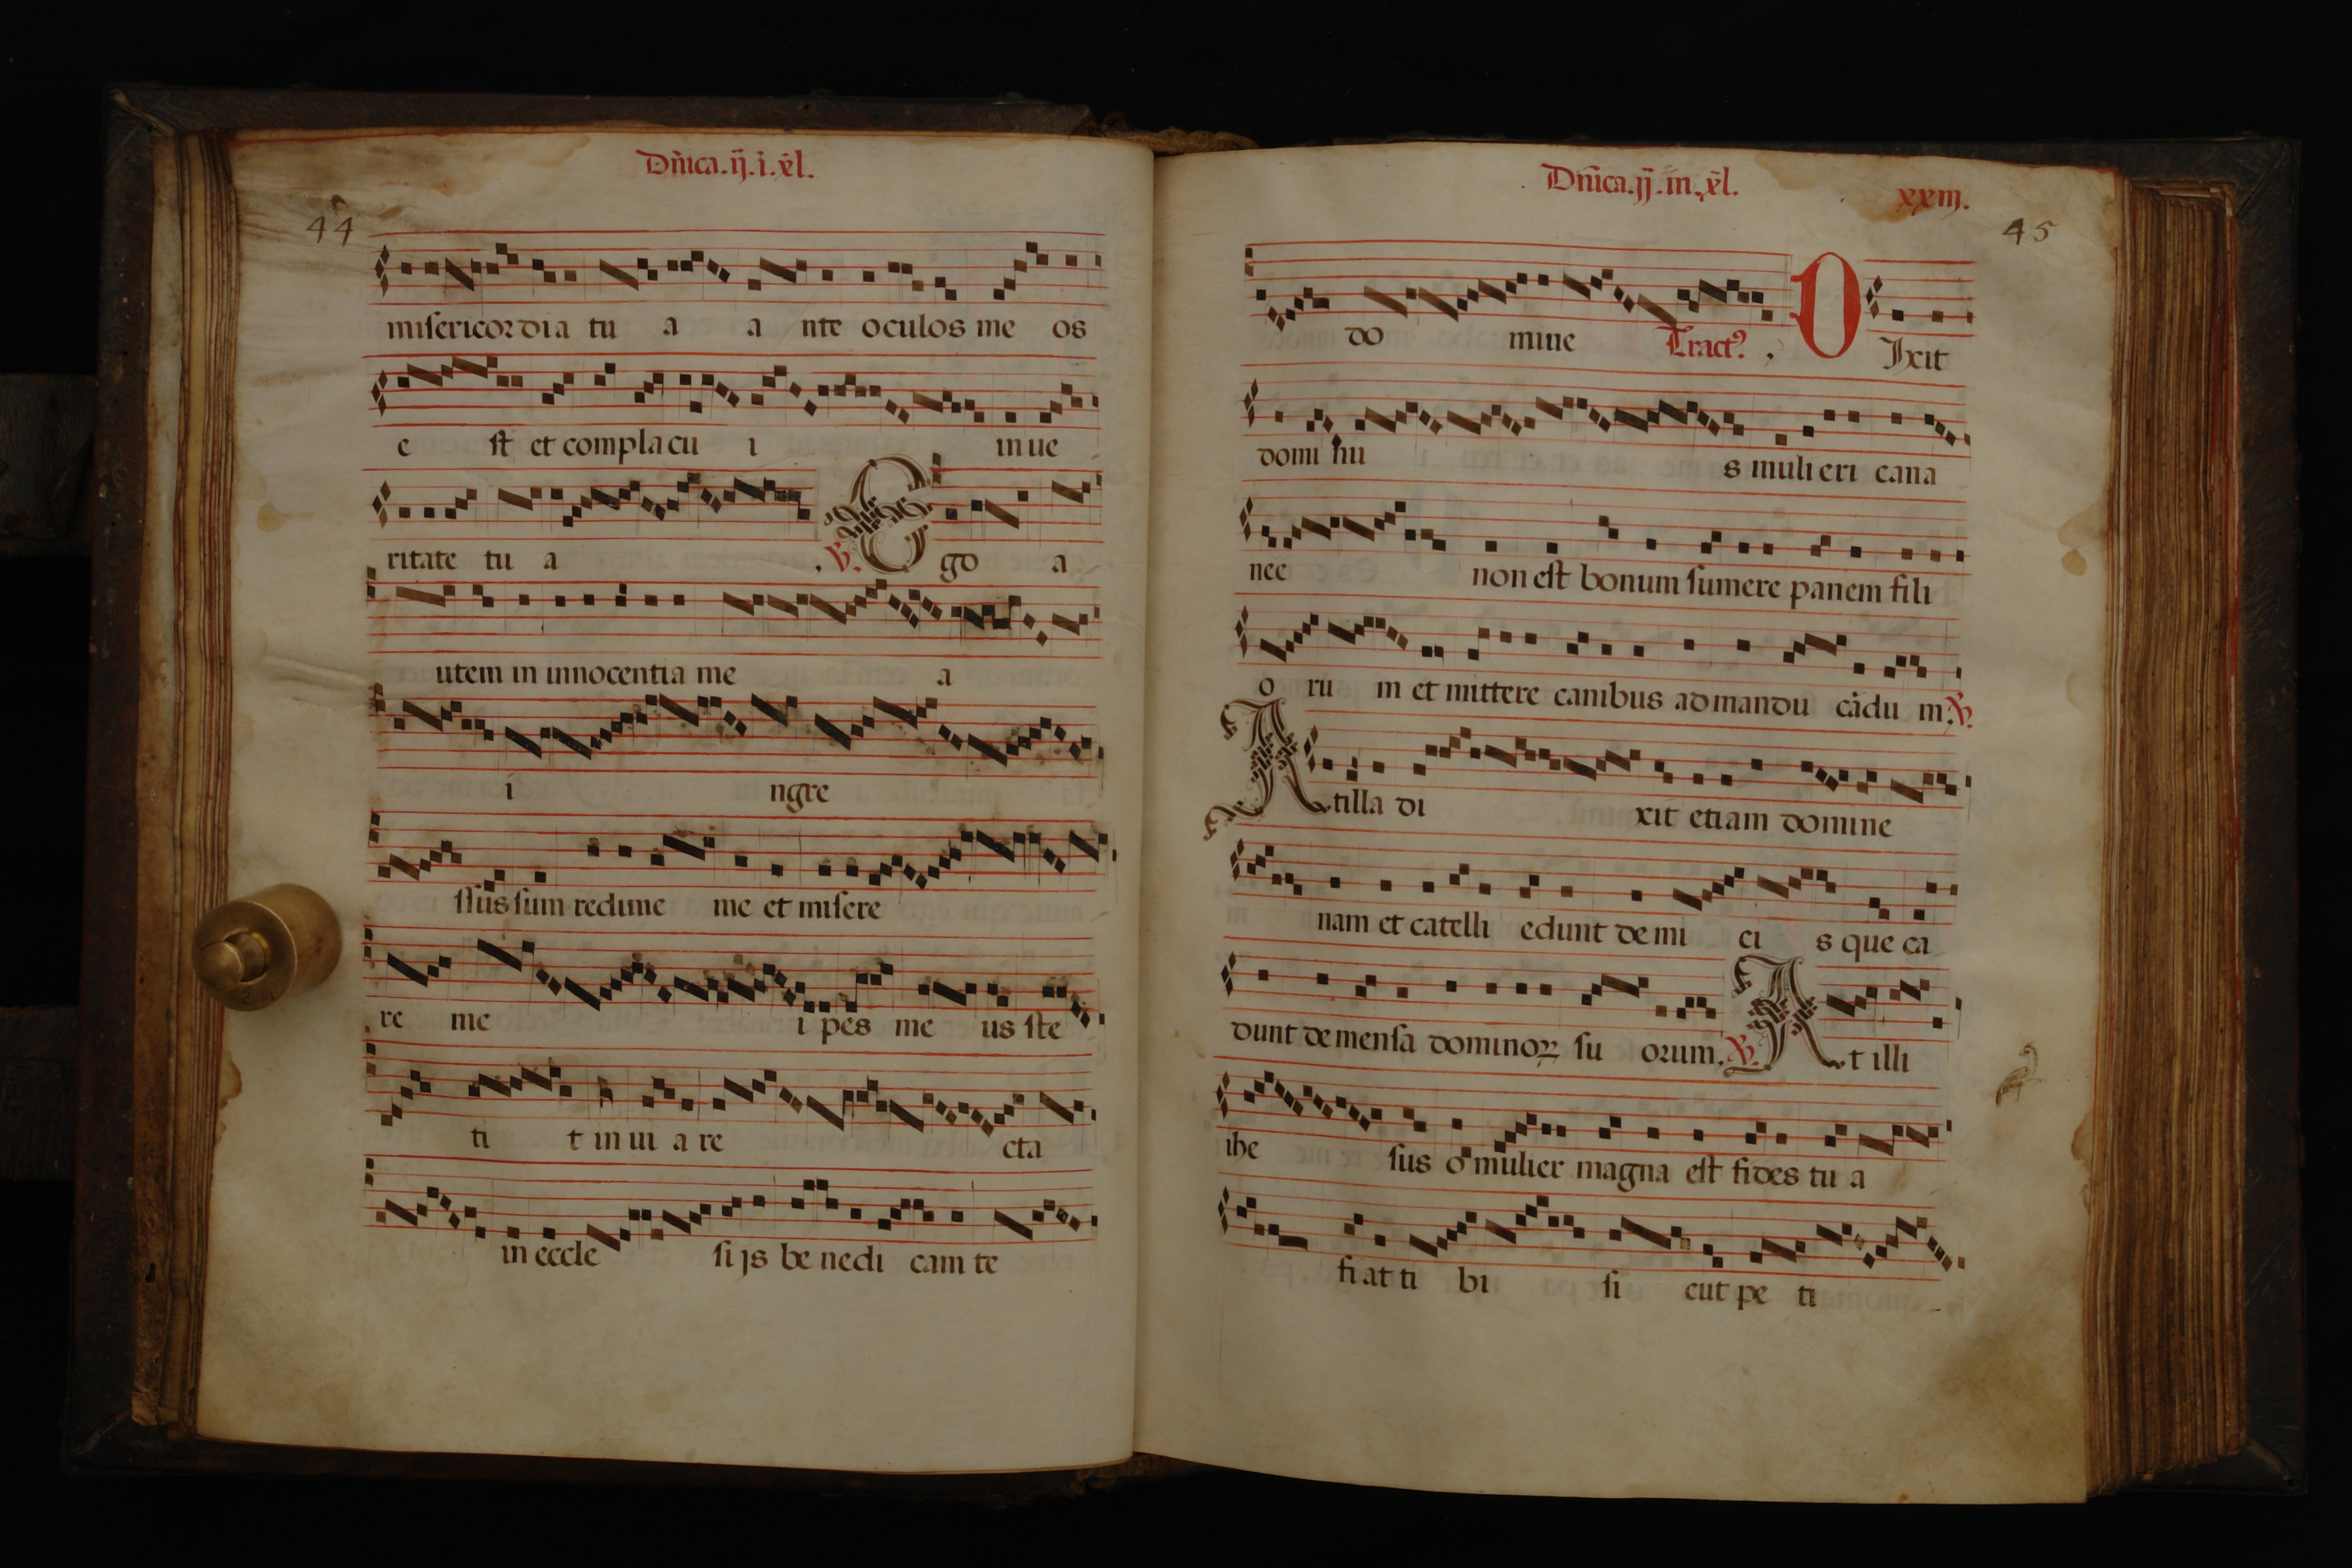 Dñica.ij.i.xl.
44
misericordia tu a a nte oculos me os
e st et complacu i in ue
ritate tu a . V. E go a
utem in innocentia me a
i ngre
ssus sum redime me et misere
re me i pes me us ste
ti t in ui a re cta
in eccle si js be nedi cam te
Dñica.ij.in.xl. xxiij.
45
do mine Tract9. D Ixit
domi nu s mulieri cana
nee non est bonum sumere panem fili
o ru m et mittere canibus ad mandu cãdu m. V.
At illa di xit etiam domine
nam et catelli edunt de mi ci s que ca
dunt de mensa dominoꝝ su orum. V. At illi
ihe sus o mulier magna est fides tu a
fi at ti bi si cut pe ti